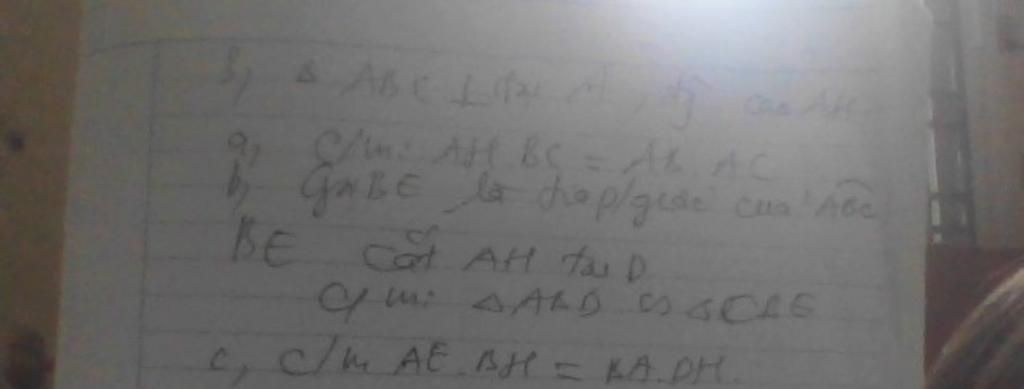 3, Δ ABC ⊥ tại A, đg cao AH
a, C/m: AH.BC = AB.AC
b, Gọi BE là tia p/giác của ABC
BE cắt AH tại D
C/m: Δ ABD ∽ Δ CBE
c, C/m AE.BH = BA.DH.